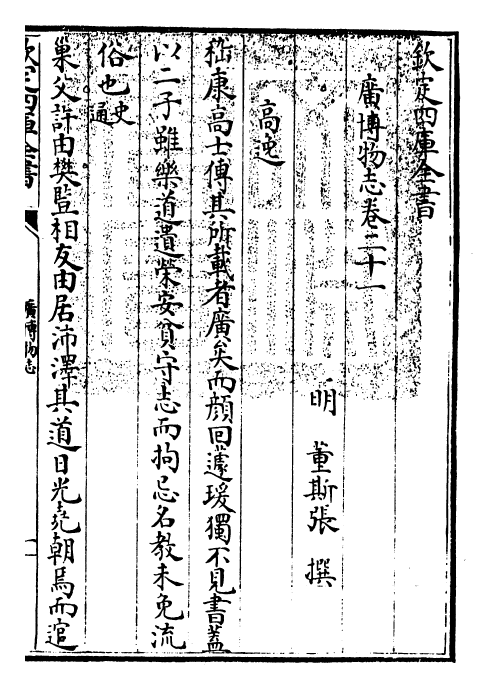 欽定四庫全書
廣博物志卷二十一
明　董斯張　撰
高逸
嵇康高士傳其所載者廣矣而顔回蘧瑗獨不見書蓋
以二子雖樂道遺榮安貧守志而拘忌名教未免流
俗也史通
巢父許由樊竪相友由居沛澤其道日光堯朝焉而逭
欽定四庫全書
廣博物志
一